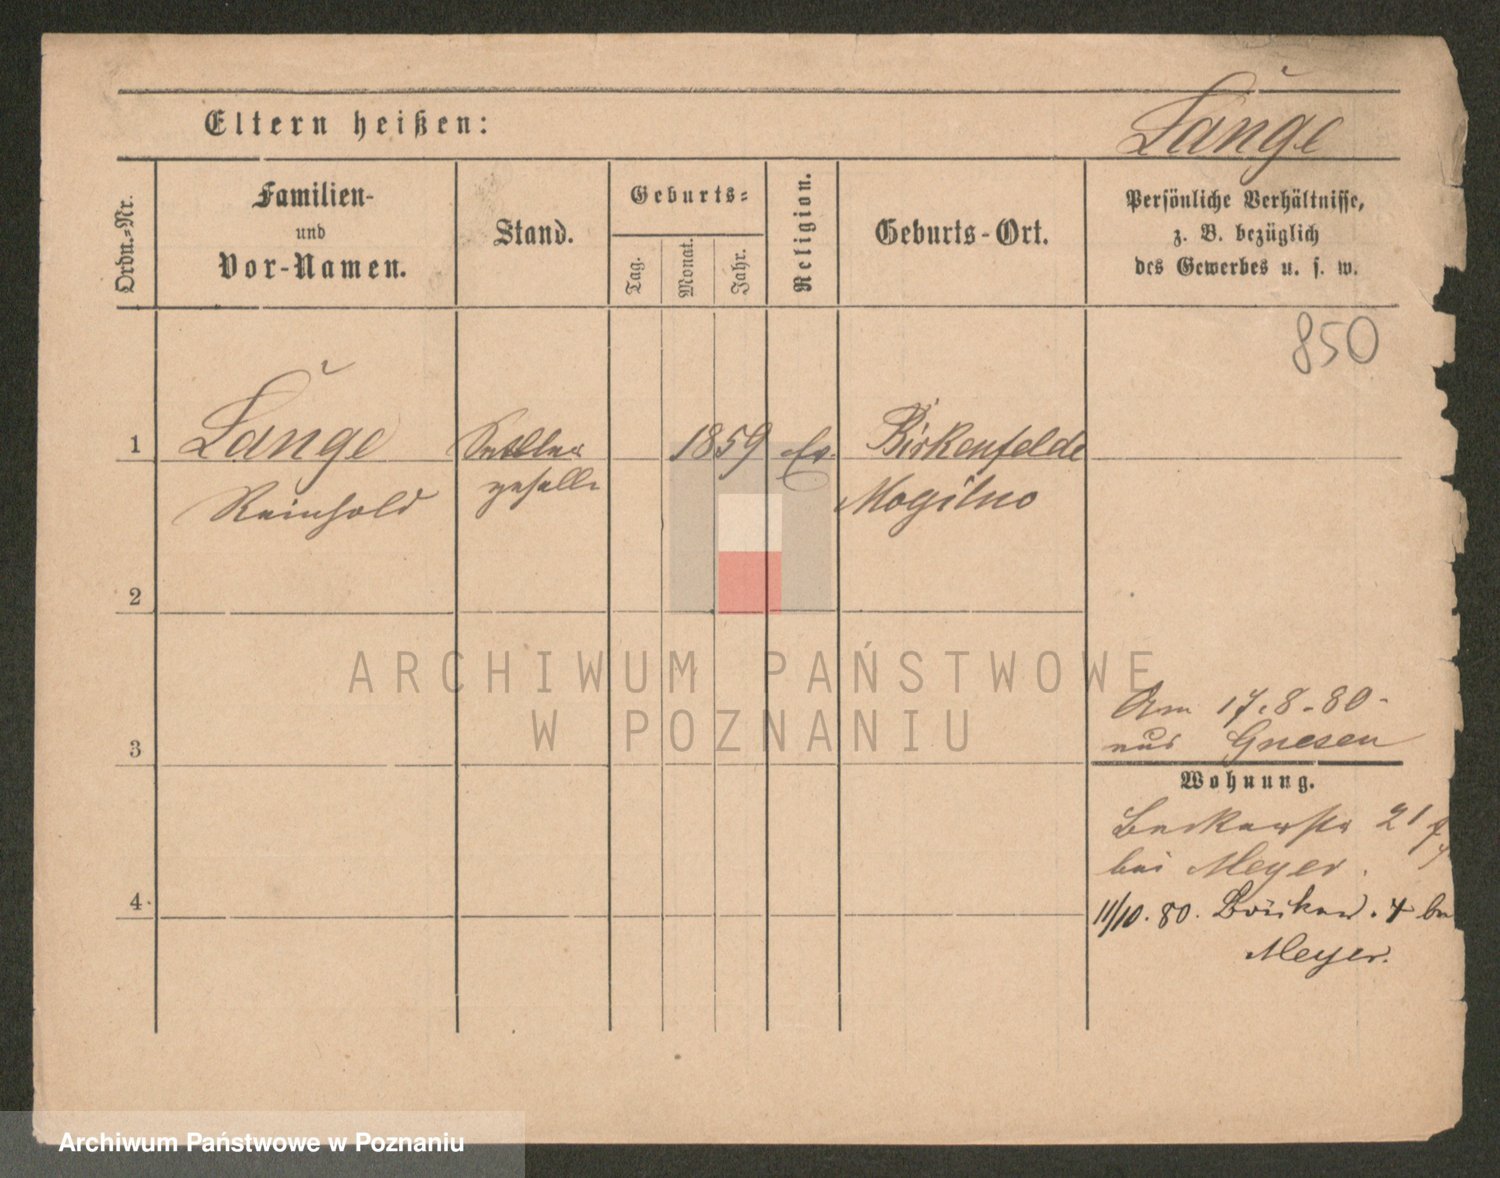 Lange
Eltern heißen:
Ordn.-Nr.
Familien-
und
Vor-Namen.
Stand.
Geburts-
Tag.
Monat.
Jahr.
Religion.
Geburts-Ort.
Persönliche Verhältnisse,
z. B. bezüglich
des Gewerbes u. s. w.
850
1 Lange Sattler 1859 Ev. Birkenfelde
Reinhold geselle Mogilno
2
3
4
Am 17.8.80-
aus Gnesen
Wohnung.
21
bei Meyer.
11/10.80. 4 bei
Meyer.
ARCHIWUM PAŃSTWOWE
W POZNANIU
Archiwum Państwowe w Poznaniu